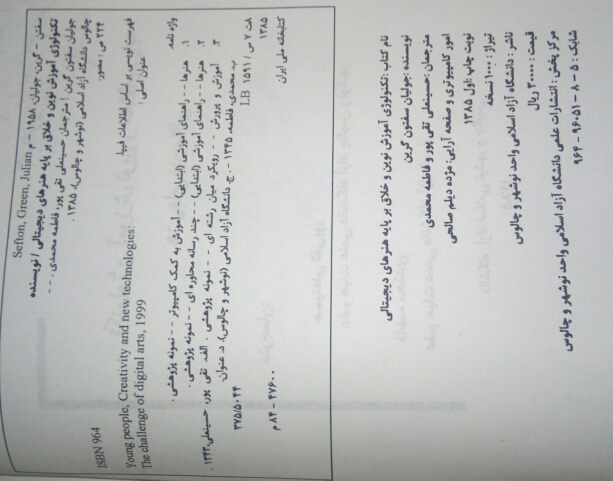 Sefton, Green, Julian
سفتن – گرین، جولیان، ۱۹۵۸ – م
تکنولوژی آموزش نوین و خلاق بر پایه هنرهای دیجیتالی / نویسنده
جولیان سفتون گرین ؛ مترجمان حسینعلی تقی پور، فاطمه محمدی. ـ ـ ـ
چالوس دانشگاه آزاد اسلامی (نوشهر و چالوس)، ۱۳۸۵.
۲۲۴ ص: مصور.
ISBN 964
فهرست نویسی بر اساس اطلاعات فیپا.
عنوان اصلی:
Young people, Creativity and new technologies:
The challenge of digital arts, 1999
واژه نامه.
۱. هنرها -- راهنمای آموزشی (ابتدایی) -- آموزش به کمک کامپیوتر -- نمونه پژوهشی.
۲. هنرها -- راهنمای آموزشی (ابتدایی) -- چند رسانه محاوره ای -- نمونه پژوهشی.
۳. آموزش و پرورش -- رویکرد میان رشته ای -- نمونه پژوهشی. الف. تقی پور، حسینعلی، ۱۳۴۳.
ب. محمدی، فاطمه، ۱۳۴۵ - ج. دانشگاه آزاد اسلامی (نوشهر و چالوس). د. عنوان.
۸ت ۷ س / ۱۵۹۱ LB
۳۷۵/۵۰۴۴
۱۳۸۵
کتابخانه ملی ایران
۴۷۶۰۰ – ۸۴ م
نام کتاب: تکنولوژی آموزش نوین و خلاق بر پایه هنرهای دیجیتالی
نویسنده: جولیان سفتون گرین
مترجمان: حسینعلی تقی پور و فاطمه محمدی
امور کامپیوتری و صفحه آرایی: مژده دیلم صالحی
نوبت چاپ: اول ۱۳۸۵
تیراژ: ۱۰۰۰ نسخه
ناشر: دانشگاه آزاد اسلامی واحد نوشهر و چالوس
قیمت: ۳۰۰۰۰ ریال
مرکز پخش: انتشارات علمی دانشگاه آزاد اسلامی واحد نوشهر و چالوس
شابک: ۵ – ۸ – ۹۶۰۵۱ – ۹۶۴